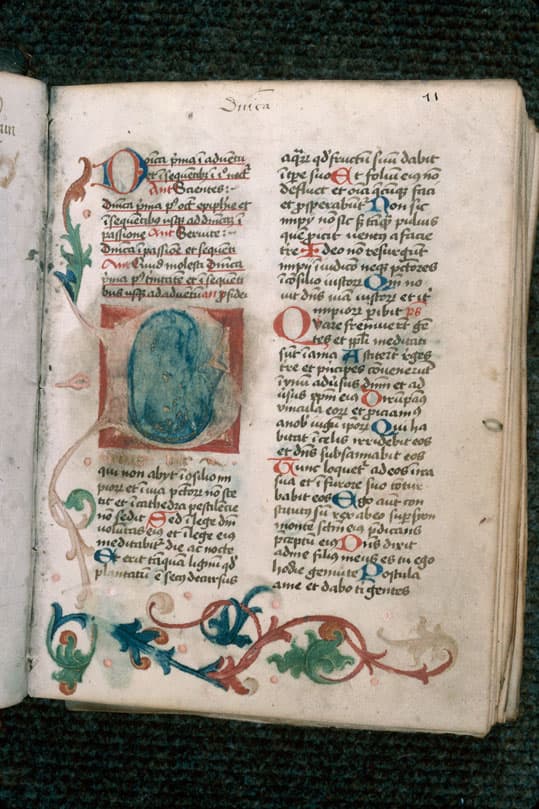 Dn̄ica
11
Dn̄ica p̄ma ī adventu
et ī sequētib᷒ ī i͛o noct̄
Ant̄ Scientes :~
Dn̄ica p̄ma p͛ oct̄ epiph̄e et
ī sequētibo usq͛ ad dn̄icā ī
passione Ant̄ Servite :~
Dn̄ica ī passiōe et sequētī
Ant̄ Quid molesti Dn̄ica
p̄ma p͛ t̄nitate et ī sequēti
bus usq͛ ad adventū an̄ p̄sidē
qui non abyt ī ɔsilio im
piorꝝ et ī via pc̄torꝝ nō ste
tit et ī cathedra pestilēcie
nō sedit Sed ī lege dn̄i
volūtas eiꝰ et ī lege eiꝰ
meditabit᷑ die ac nocte
Et erit tāquā lignū qd̄
plantatū ē sec͛ decursus
aqꝝ qd̄ fructū suū dabit
ī tp̄e suo Et foliū eiꝰ nō
defluet et oīa q̄cūq͛ faci
et ꝓsperabūt᷑ Non sic
impy nō sic ſꝫ tāq̄ pulvis
quē ꝓicit ventꝰ a facie
tre Ideo nō resurgūt
impy ī iudicio neq͛ pctōres
ī ɔsilio iustorꝝ Qm̄ no
vit dn̄s viā iustorꝝ et it᷑
impiorꝝ ꝑibit ps̄
Quare fremuerūt gē
tes et ppl̄i meditati
sūt īania Astiterūt reges
tre et pͥncipes ɔvenerūt
ī vnū advsus dn̄m et ad
vsus xp̄m eiꝰ Dirūpaꝰ
vincula eorꝝ et ꝓiciamꝰ
a nob̄ iugū ip̄orꝝ Qui ha
bitat ī celis irridebit eos
et dn̄s subsannabit eos
Tunc loquet᷑ ad eos ī ira
sua et ī furore suo ɔtur
babit eos Ego aūt con
stitutꝰ sū rex ab eo sup͛ syon
monte sctm̄ eiꝰ p̄dicans
p̄ceptū eiꝰ Dn̄s dixit
ad me filiꝰ meus es tu ego
hodie genui te Postula
a me et dabo ti gentes